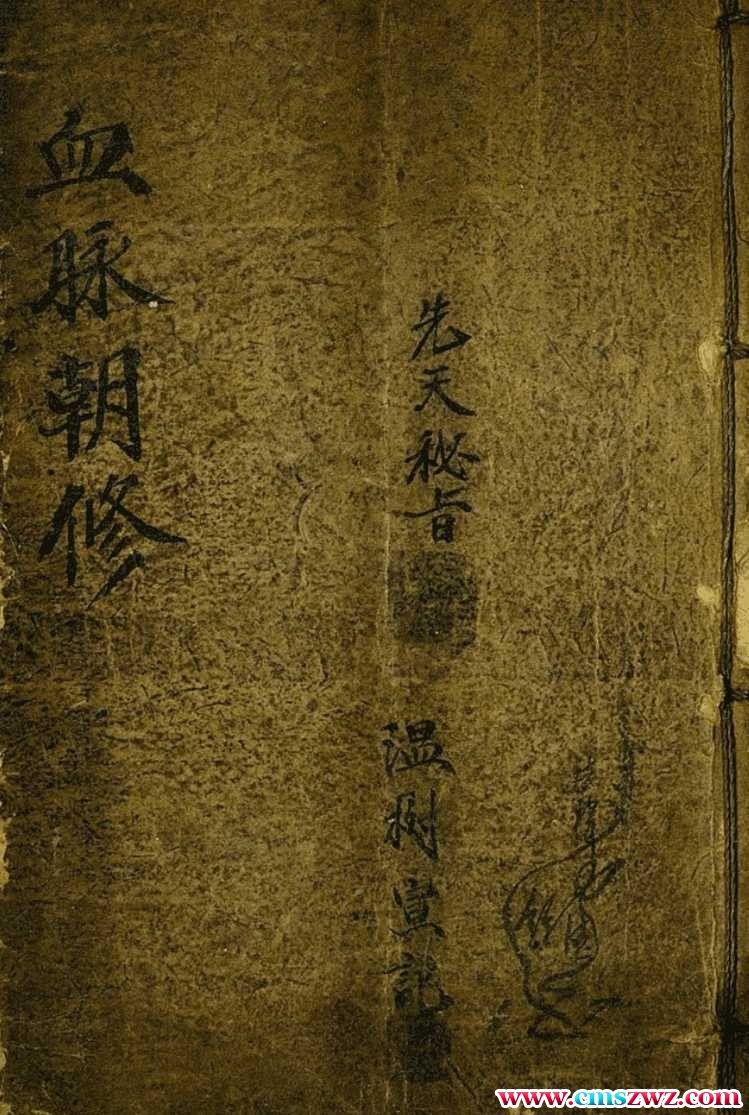 先天秘旨
温樹宣記
血脉朝修
www.cmszwz.com